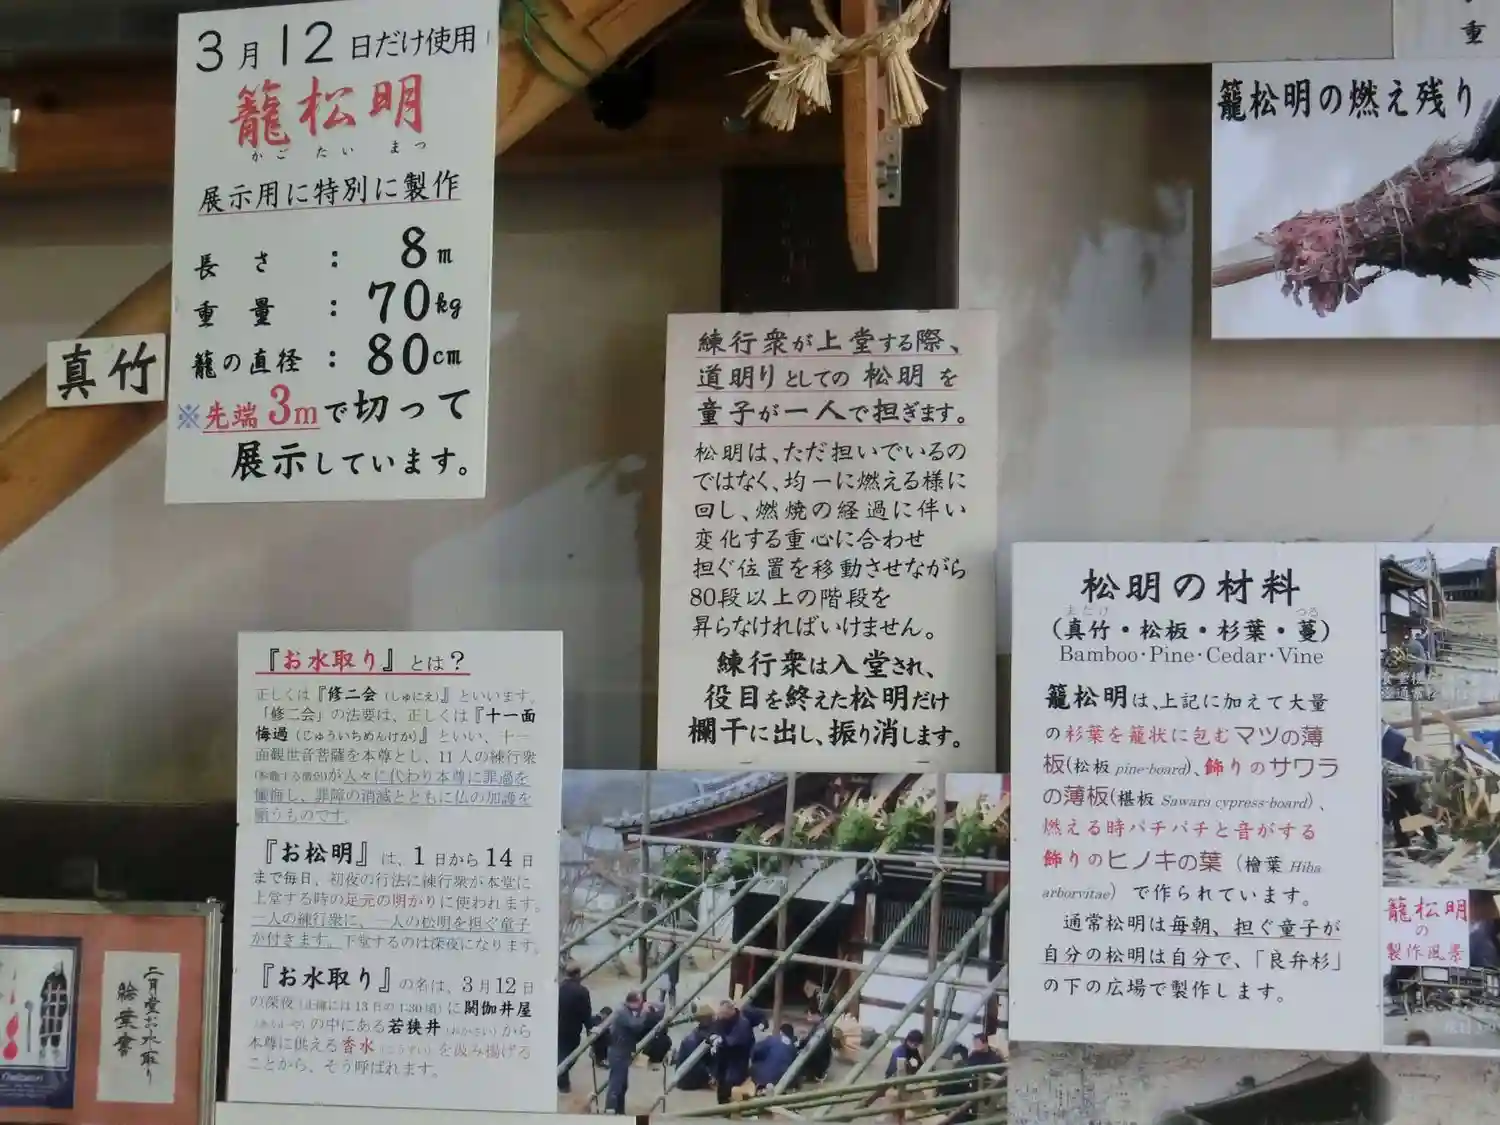 3月12日だけ使用
籠松明
かごたいまつ
展示用に特別に製作
長さ：8m
重量：70kg
籠の直径：80cm
※先端3mで切って
展示しています。
真竹
籠松明の燃え残り
重
練行衆が上堂する際、
道明りとしての松明を
童子が一人で担ぎます。
松明は、ただ担いでいるの
ではなく、均一に燃える様に
回し、燃焼の経過に伴い
変化する重心に合わせ
担ぐ位置を移動させながら
80段以上の階段を
昇らなければいけません。
練行衆は入堂され、
役目を終えた松明だけ
欄干に出し、振り消します。
『お水取り』とは？
正しくは『修二会（しゅにえ）』といいます。
「修二会」の法要は、正しくは『十一面
悔過（じゅういちめんけか）』といい、十一
面観世音菩薩を本尊とし、11人の練行衆
が人々に代わり本尊に罪過を
懺悔し、罪障の消滅とともに仏の加護を
願うものです。
『お松明』は、1日から14日
まで毎日、初夜の行法に練行衆が本堂に
上堂する時の足元の明かりに使われます。
一人の練行衆に、一人の松明を担ぐ童子
が付きます。下堂するのは深夜になります。
『お水取り』の名は、3月12日
の深夜（正確には13日の1:30頃）に閼伽井屋
の中にある若狭井（わかさい）から
本尊に供える香水（こうずい）を汲み揚げる
ことから、そう呼ばれます。
松明の材料
まだけ つる
（真竹・松板・杉葉・蔓）
Bamboo・Pine・Cedar・Vine
籠松明は、上記に加えて大量
の杉葉を籠状に包むマツの薄
板(松板 pine-board)、飾りのサワラ
の薄板(椹板 Sawara cypress-board)、
燃える時パチパチと音がする
飾りのヒノキの葉（檜葉 Hiba
arborvitae）で作られています。
通常松明は毎朝、担ぐ童子が
自分の松明は自分で、「良弁杉」
の下の広場で製作します。
籠松明
の
製作風景
二月堂お水取り
絵葉書